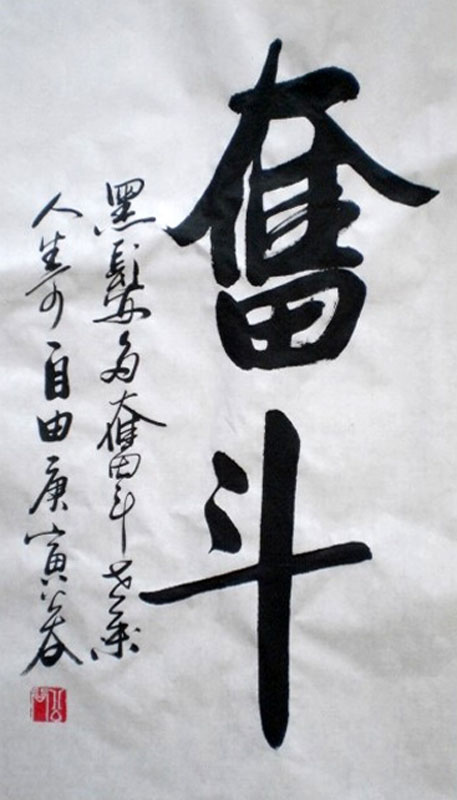 奮斗
黑髮多奮斗
人生可自由庚寅春